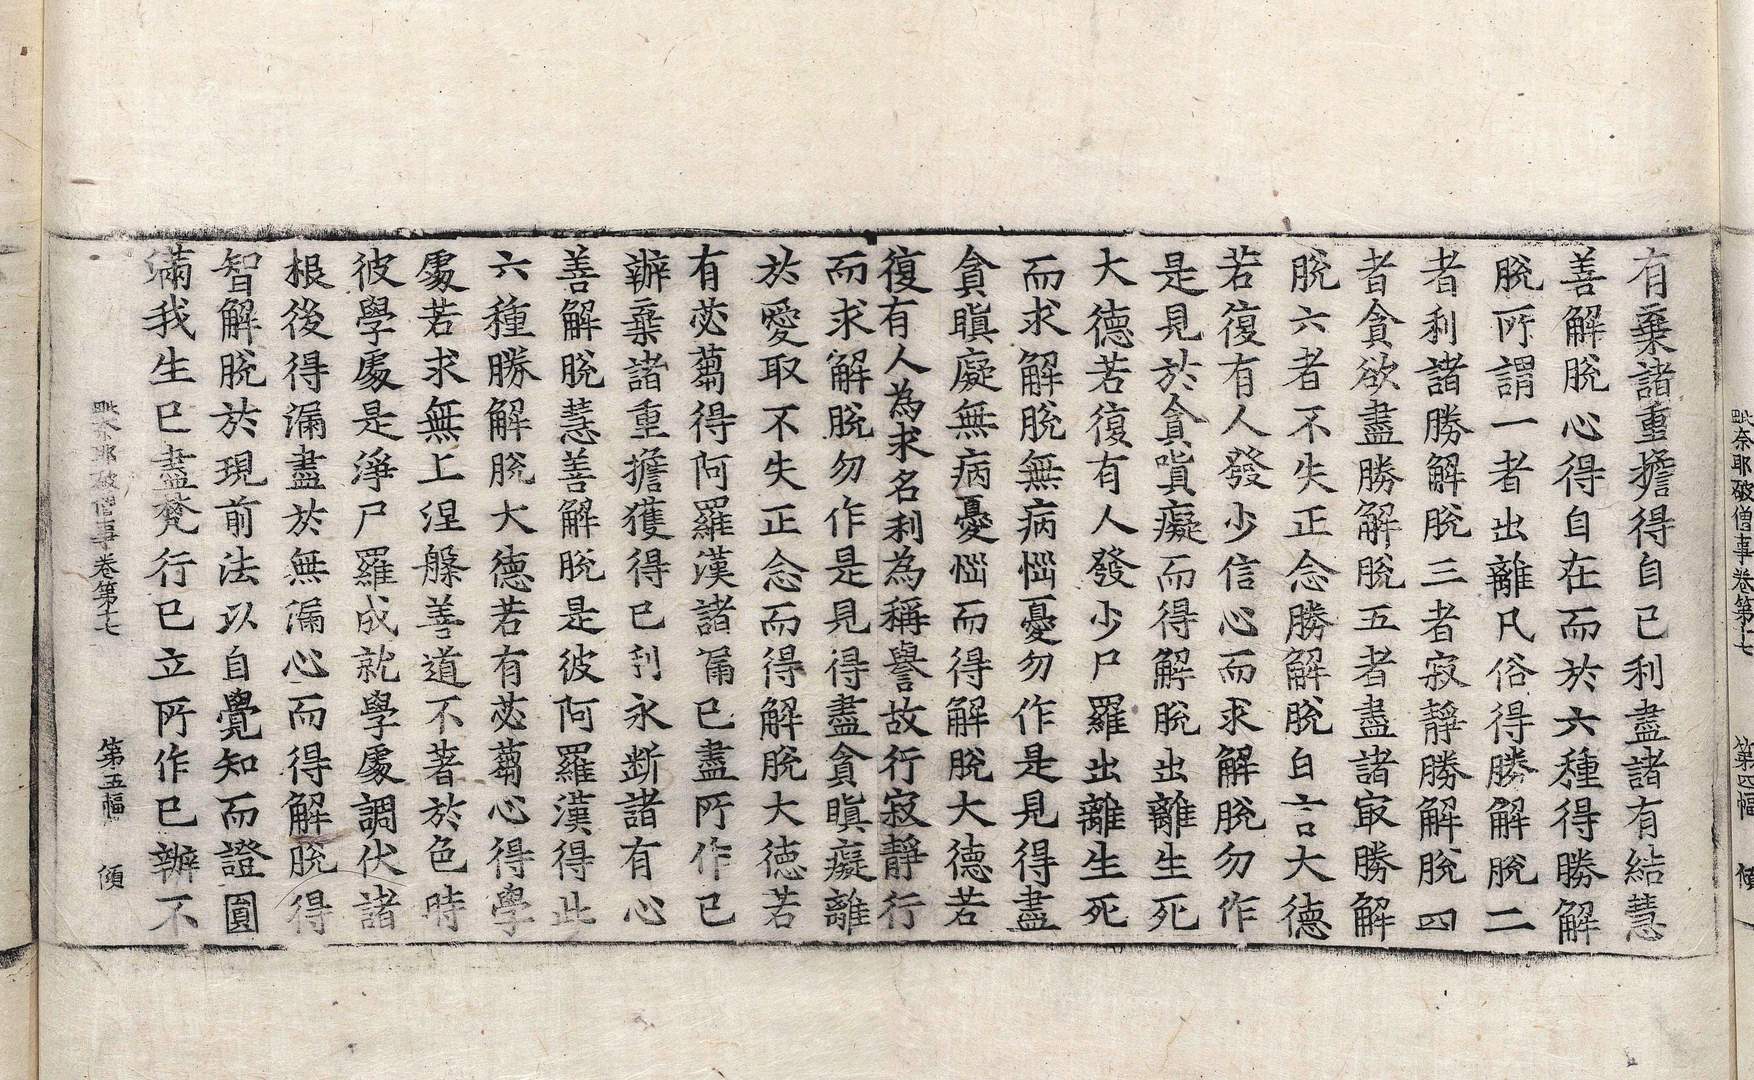 毗奈耶破僧事卷第七 第四幅 傾
有棄諸重擔得自己利盡諸有結慧
善解脫心得自在而於六種得勝解
脫所謂一者出離凡俗得勝解脫二
者利諸勝解脫三者寂靜勝解脫四
者貪欲盡勝解脫五者盡諸㝡勝解
脫六者不失正念勝解脫白言大德
若復有人發少信心而求解脫勿作
是見於貪嗔癡而得解脫出離生死
大德若復有人發少尸羅出離生死
而求解脫無病惱憂勿作是見得盡
貪瞋癡無病憂惱而得解脫大德若
復有人為求名利為稱譽故行寂靜行
而求解脫勿作是見得盡貪瞋癡離
於愛取不失正念而得解脫大德若
有苾蒭得阿羅漢諸漏已盡所作已
辦棄諸重擔獲得己利永斷諸有心
善解脫慧善解脫是彼阿羅漢得此
六種勝解脫大德若有苾蒭心得學
處若求無上涅槃善道不著於色時
彼學處是淨尸羅成就學處調伏諸
根後得漏盡於無漏心而得解脫得
智解脫於現前法以自覺知而證圓
滿我生已盡梵行已立所作已辦不
毗奈耶破僧事卷第七 第五幅 傾